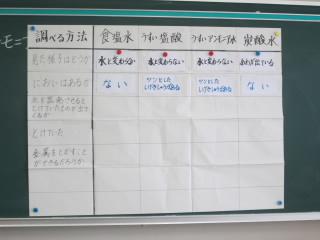 モニ
調べる方法 食塩水 うすい塩酸 うすいアンモニア水 炭酸水
見た様子はどうか 水と変わらない 水と変わらない 水と変わらない あわが出ている
においはあるか ない ツンとした ツンとした ない
しげきしゅうがある しげきしゅうがある
水を蒸発させると
とけていたものが出て
くるか
とけていた
金属をとかすこと
ができるだろうか